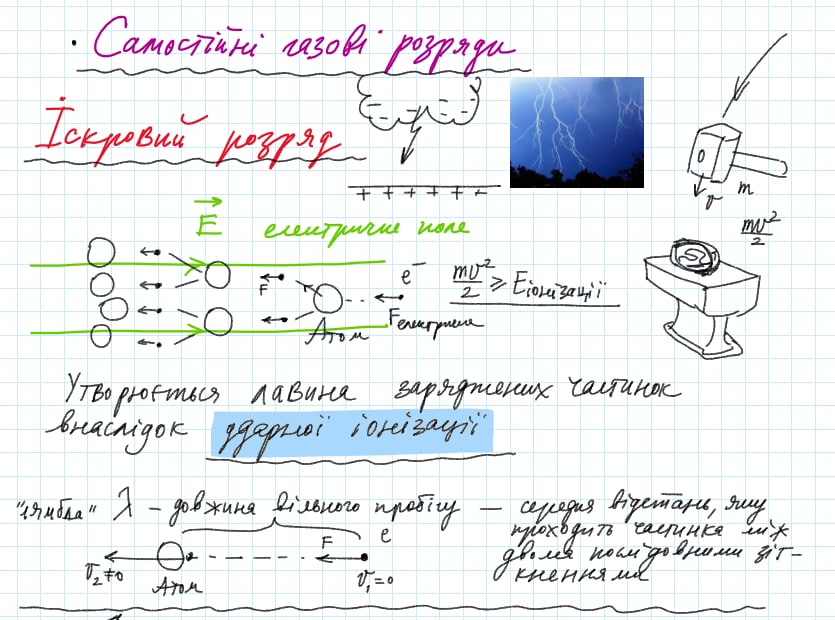 · Самостійні газові розряди
Іскровий розряд
+ + + + + +
E електричне поле
v m
mv²/2
F e⁻ mv²/2 ≥ Eіонізації
Атом Fелектричне
Утворюється лавина заряджених частинок
внаслідок ударної іонізації
"лямбда" λ – довжина вільного пробігу — середня відстань, яку
проходить частинка між
двома послідовними зіт-
кненнями
F e
v₂≠0 Атом v₁=0